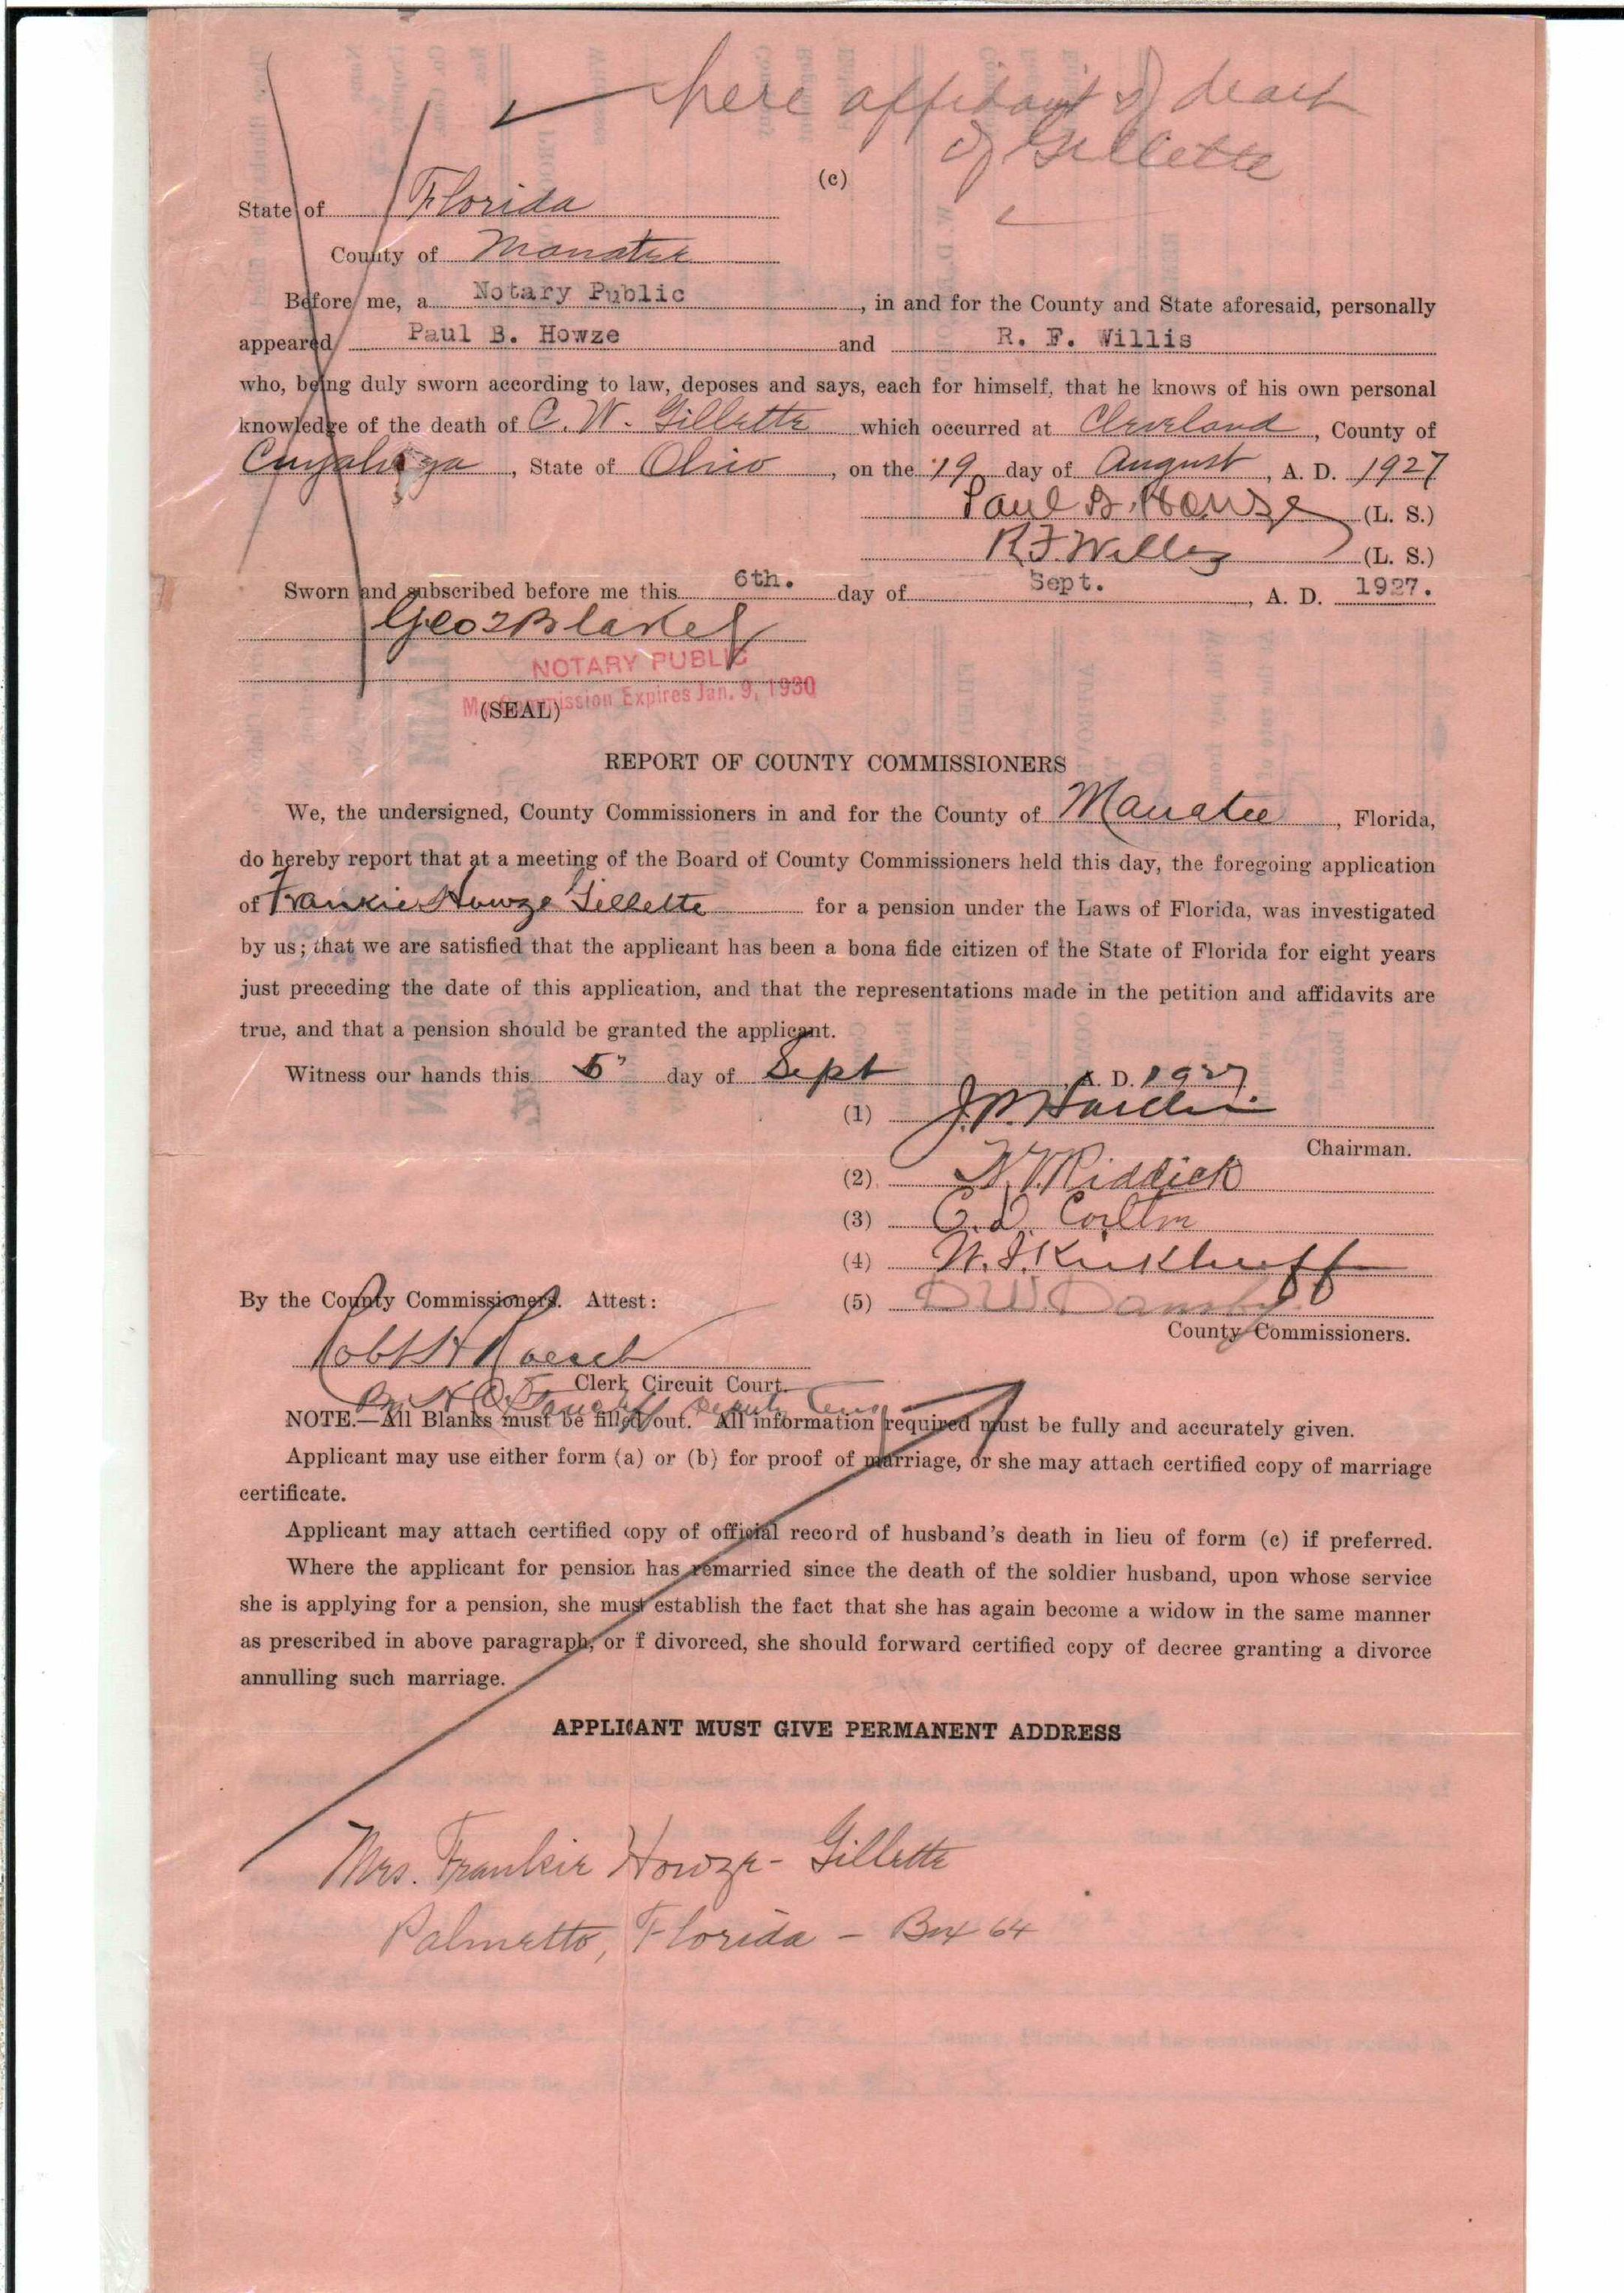 here affidavit of death
of Gillette
(c)
State of Florida
County of Manatee
Before me, a Notary Public, in and for the County and State aforesaid, personally
appeared Paul B. Howze and R. F. Willis
who, being duly sworn according to law, deposes and says, each for himself, that he knows of his own personal
knowledge of the death of C. W. Gillette which occurred at Cleveland, County of
Cuyahoga, State of Ohio, on the 19 day of August, A. D. 1927
Paul B. Howze (L. S.)
R F Willis (L. S.)
Sworn and subscribed before me this 6th. day of Sept., A. D. 1927.
Geo Blakely
NOTARY PUBLIC
My Commission Expires Jan. 9, 1930
(SEAL)
REPORT OF COUNTY COMMISSIONERS
We, the undersigned, County Commissioners in and for the County of Manatee, Florida,
do hereby report that at a meeting of the Board of County Commissioners held this day, the foregoing application
of Frankie Howze Gillette for a pension under the Laws of Florida, was investigated
by us; that we are satisfied that the applicant has been a bona fide citizen of the State of Florida for eight years
just preceding the date of this application, and that the representations made in the petition and affidavits are
true, and that a pension should be granted the applicant.
Witness our hands this 5" day of Sept, A. D. 1927
(1) J.P. Harllee
Chairman.
(2) Riddick
(3)
(4) W. J. Kirkhuff
(5) D W Dansby
By the County Commissioners. Attest:
County Commissioners.
Robt H Roesch
Clerk Circuit Court.
By Deputy
NOTE.—All Blanks must be filled out. All information required must be fully and accurately given.
Applicant may use either form (a) or (b) for proof of marriage, or she may attach certified copy of marriage
certificate.
Applicant may attach certified copy of official record of husband's death in lieu of form (c) if preferred.
Where the applicant for pension has remarried since the death of the soldier husband, upon whose service
she is applying for a pension, she must establish the fact that she has again become a widow in the same manner
as prescribed in above paragraph, or if divorced, she should forward certified copy of decree granting a divorce
annulling such marriage.
APPLICANT MUST GIVE PERMANENT ADDRESS
Mrs. Frankie Howze-Gillette
Palmetto, Florida - Box 64